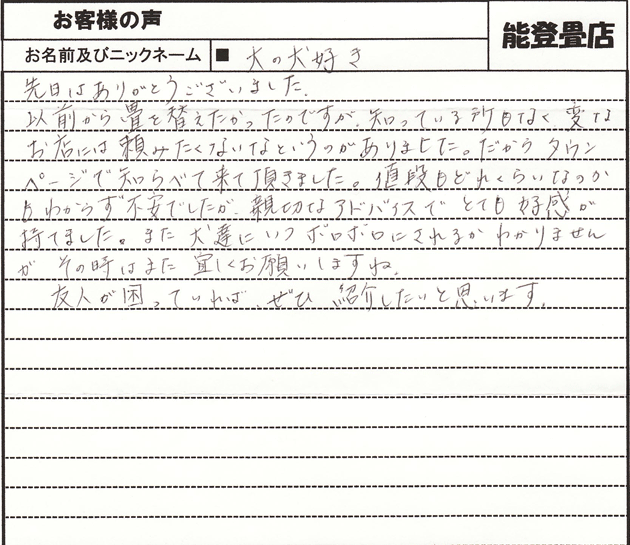 お客様の声
能登畳店
お名前及びニックネーム ■ 大の犬好き
先日はありがとうございました。
以前から畳を替えたかったのですが、知っている所もなく、変な
お店には頼みたくないなというのがありました。だから タウン
ページで知らべて来て頂きました。値段もどれくらいなのか
もわからず不安でしたが、親切なアドバイスで とても好感が
持てました。また 犬達にいつ ボロボロにされるか わかりません
が その時はまた 宜しくお願いしますね。
友人が困っていれば、ぜひ 紹介したいと思います。